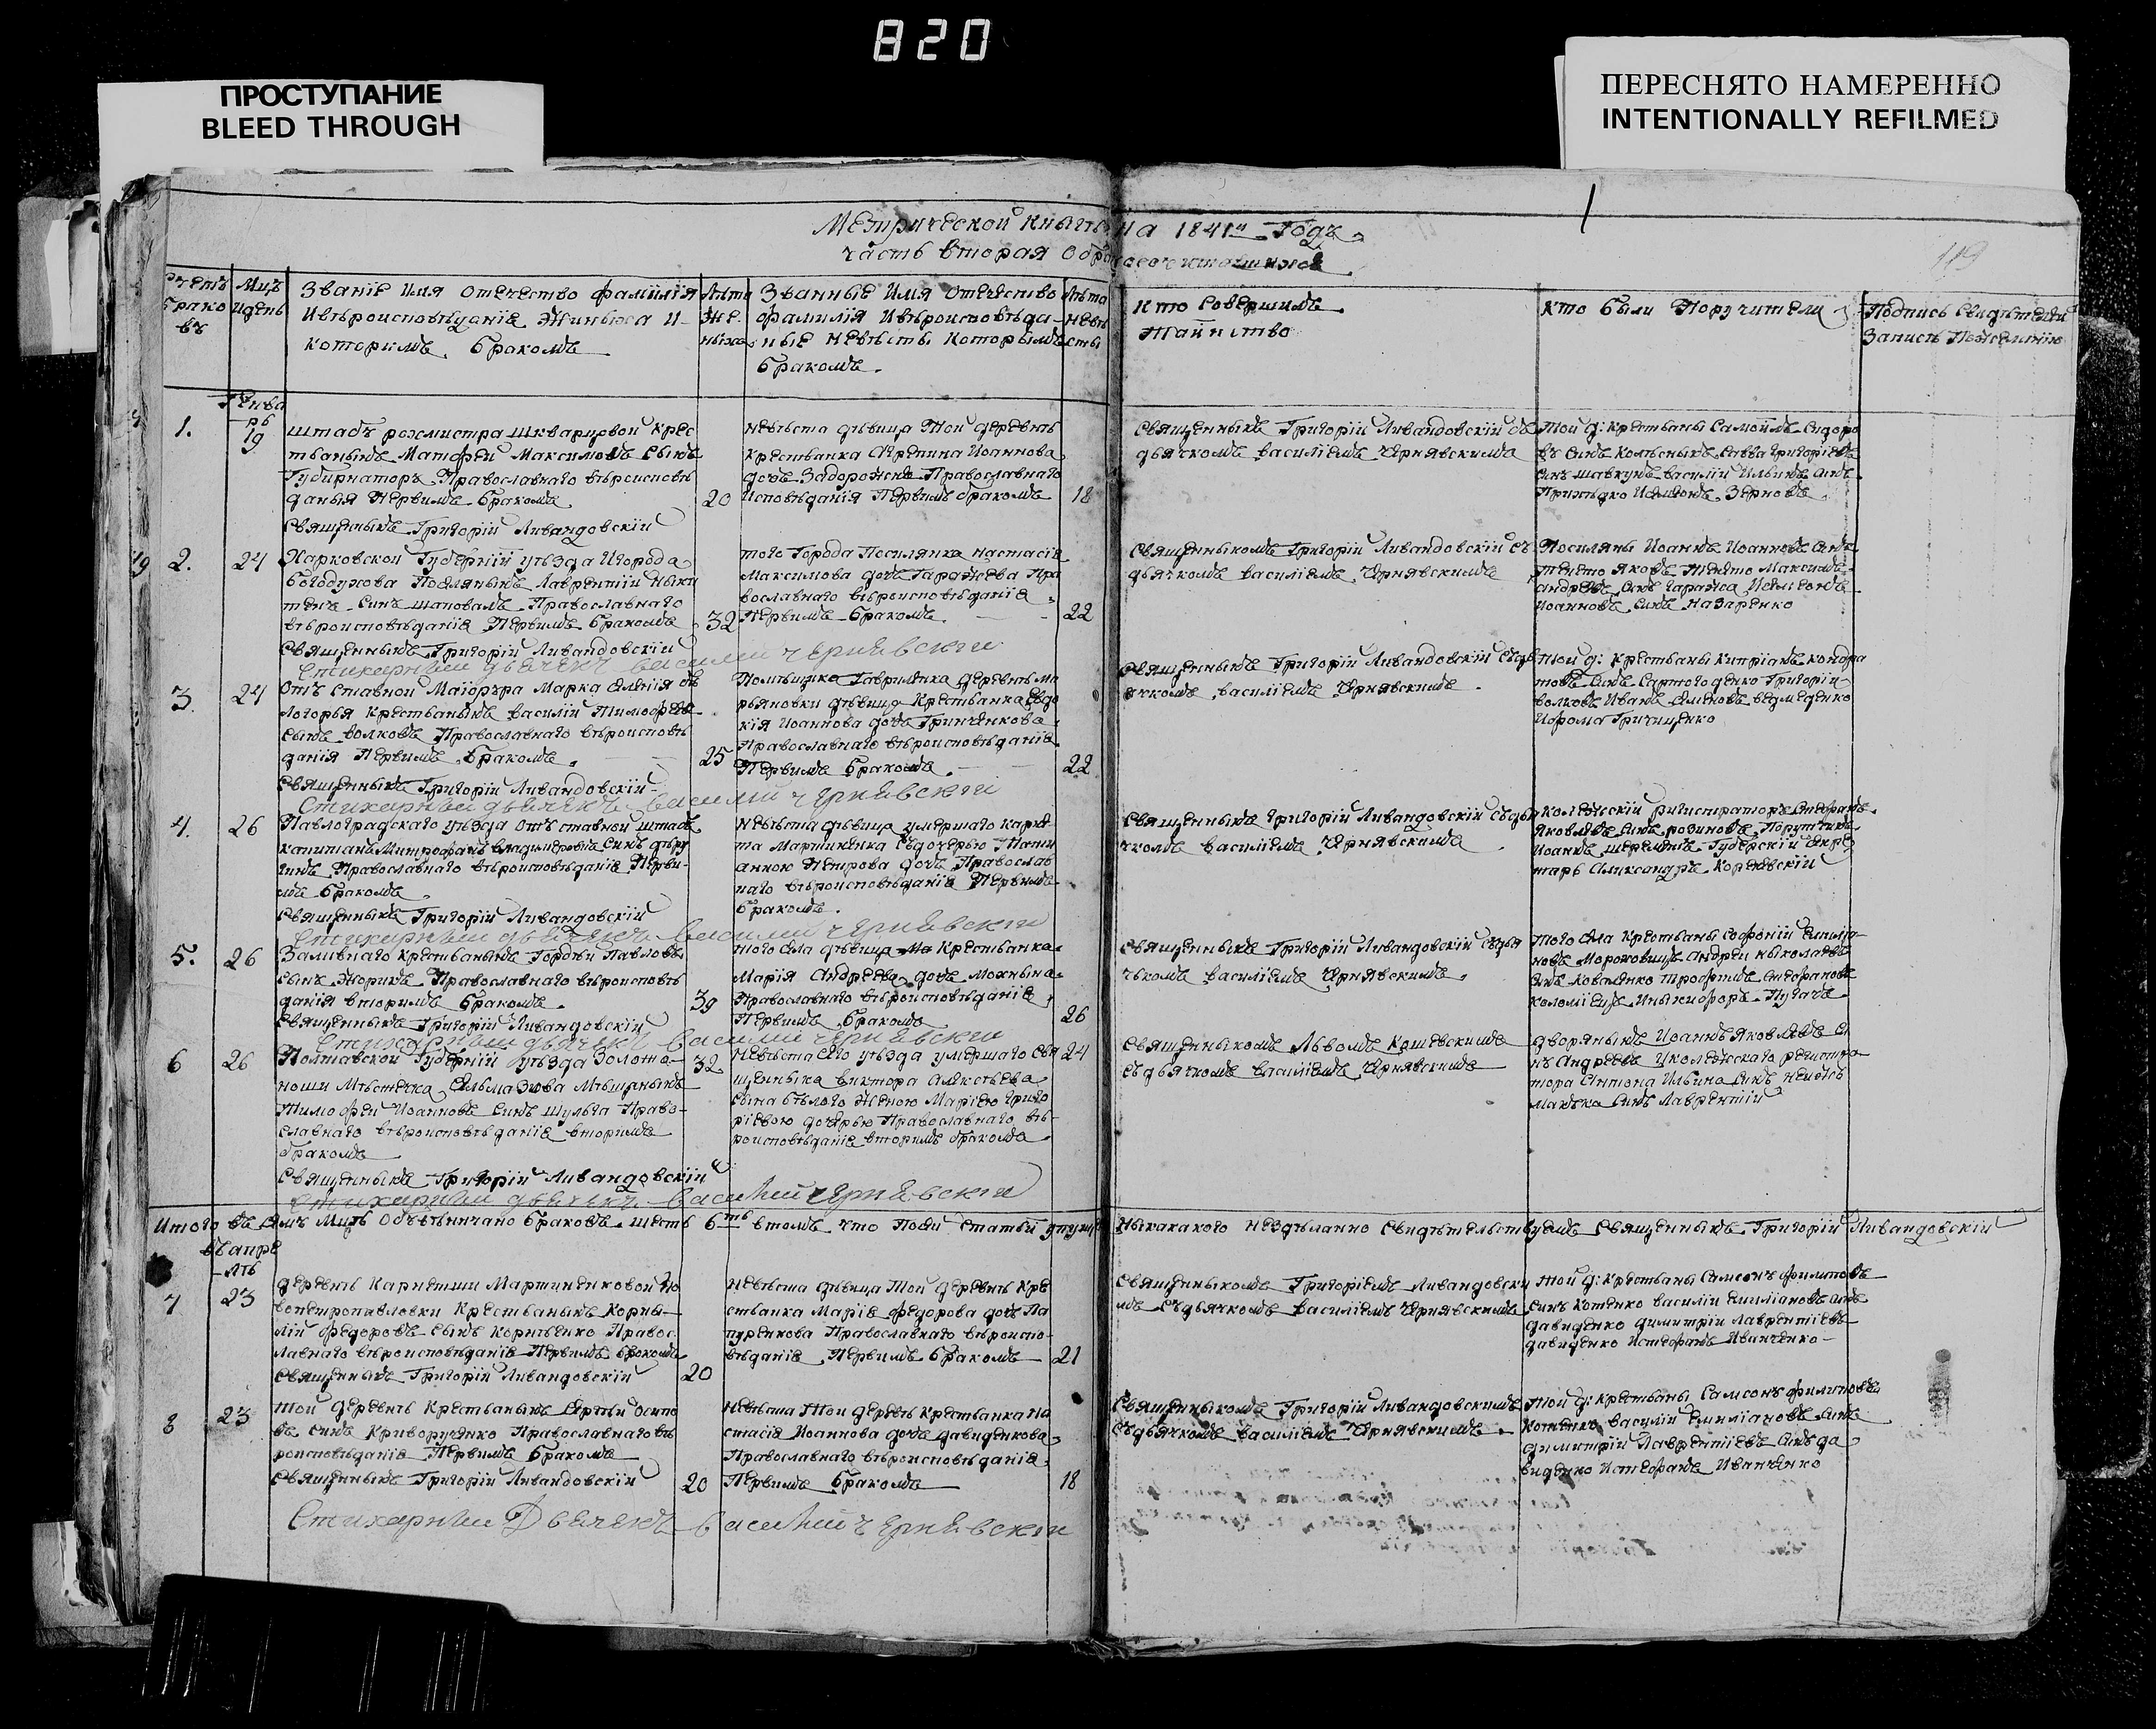 820
ПРОСТУПАНИЕ
BLEED THROUGH
ПЕРЕСНЯТО НАМЕРЕННО
INTENTIONALLY REFILMED
Метрической книги на 1841й Годъ
часть вторая о бракосочитавшихся
119
Счетъ браковъ
Мцъ идень
Званіе Имя Отечество фамилія
Ивѣроисповѣданіе Жиниха И
которимъ бракомъ
Лѣта Жениха
Званные Имя Отечество
фамилія Ивѣроисповѣда-
ные Невѣсты Которымъ
бракомъ.
Лѣта невѣсты
Кто Совершилъ
Таинство
Кто были Поручители
Подпись Свидѣтелей
Записѣ Пожеланію
Генва
рь
1.
19
штабъ розмистра Шкварцовой крес
тьяныкъ Матфей Максимовъ Сынъ
Губирнаторъ Православнаго вѣроисповѣ
данія Первимъ бракомъ
20
Священыкъ Григорій Ливандовскій
Невѣста дѣвица Той деревнѣ
Крестьанка Агрепина Иоаннова
дочъ Задорожня Православнаго
исповѣданія Первимъ бракомъ
18
Священныкъ Григорій Ливандовскій съ
дьячкомъ василіемъ Чернявскимъ
Той д: крестьаны Самоилъ Сидоро
въ Синъ Колѣсныкъ Савва Григоріевъ
Синъ шавкунъ василій Ильинъ Синъ
2.
24
Харковской Губерній уѣзда Игорода
богодухова Поселяныкъ Лаврентій Ныки
тинъ Синъ шаповалъ Православнаго
вѣроисповѣданіе Первимъ бракомъ
32
Священныкъ Григорій Ливандовскій
Стихарный дьячекъ василій чернявскій
того Города Поселянка Настасія
Максимова дочъ Гаржѣева Пра
вославнаго вѣроисповѣданіе
Первимъ бракомъ.
22
Священныкомъ Григорій Ливандовскій съ
дьячкомъ василіемъ Чернявскимъ
Поселяны Иоанъ Иоанновъ Синъ
Иоанновъ Синъ Назаренко
3.
24
Отъ ставной Маіоръра Марка
логорья Крестьаныкъ василій Тимофеевъ
Сынъ волковъ Православнаго вѣроисповѣ
данія Первимъ бракомъ.
25
Священныкъ Григорій Ливандовскій
Стихарный дьячекъ василій чернявскій
Помѣщика Гавриленка деревнѣ Ма
рьяновки дѣвица Крестьанка Евдо
кія Иоаннова дочъ Гринченкова
Православнаго вѣроисповѣданіе
Первимъ бракомъ.
22
Священныкъ Григорій Ливандовскій съдь
ячкомъ василіемъ Чернявскимъ.
Той д: крестьаны Кипріанъ Кондра
товъ Синъ Григорій
волковъ Иванъ Семеновъ ведмеденко
Ифома Гричищенко
4.
26
Павлоградскаго уѣзда Отъ ставной штабъ
капитанъ Митрофанъ владимеровъ Синъ
Православнаго вѣроисповѣданіе Перви-
мъ бракомъ
Священныкъ Григорій Ливандовскій
Стихарный дьячекъ василій чернявскій
Невѣста дѣвица умершаго
та Мартиненка Съдочерью Тати
анною Петрова дочъ Православ
наго вѣроисповѣданіе Первимъ
бракомъ.
Священныкъ Григорій Ливандовскій съдья
чкомъ василіемъ Чернявскимъ
Колежскій Ригистраторъ Стефанъ
Яковлевъ Синъ розиновъ Порутчикъ
Иоанъ шереметъ Губерскій Секре
тарь Александръ Корнѣвскій
5.
26
Заливнаго крестьаныкъ Гордѣй Павловъ
Сынъ Жорикъ Православнаго вѣроисповѣ
данія вторимъ бракомъ.
39
Священныкъ Григорій Ливандовскій
Стихарный дьячекъ василій чернявскій
того Села дѣвица Крестьанка
Марія Андреева дочъ Мохнына
Православнаго вѣроисповѣданіе
Первимъ бракомъ
26
Священныкъ Григорій Ливандовскій съдья
чькомъ василіемъ Чернявскимъ.
того Села крестьаны Софроній
новъ Мороховецъ Андрей Ныколаевъ
Синъ Коваленко Трофимъ Стефановъ
коломіецъ Иныкифоръ Пугачъ
6
26
Полтавской Губерній уѣзда Золото-
ноши Мѣстечка Ельмазова Мѣщаныкъ
Тимофей Иоанновъ Синъ шульга Право-
славнаго вѣроисповѣданіе вторимъ
бракомъ
32
Священныкъ Григорій Ливандовскій
Стихарный дьячекъ василій чернявскій
Невѣста Сего уѣзда умершаго Свя
щенныка виктора Алексѣева
Сына бѣлого Женою Маріею Григо
ріевою дочерью Православнаго вѣ-
роисповѣданіе вторимъ бракомъ
24
Священыкомъ Львомъ Кошевскимъ
Съдьячкомъ василіемъ Чернявскимъ
дворяныкъ Иоанъ Яковлевъ Си
нъ Андреевъ Иколежскаго регистра
тора Антона Ильина Синъ
Синъ Лаврентій
Итого въ Семъ Мцѣ Объвѣнчано браковъ шесть 6ть втомъ что Посей Статьи
Ныкакакого недѣланно Свидѣтельствуемъ Священныкъ Григорій Ливандовскій
въ апре
лѣ
7
23
деревнѣ Карпетши Мартиненковой Но
вопетропавловки Крестьаныкъ Корны-
лій Федоровъ Сынъ Корнѣенко Правос
лавнаго вѣроисповѣданіе Первимъ бракомъ
20
Священныкъ Григорій Ливандовскій
Невѣста дѣвица Той деревнѣ Кре
стьанка Маріе Федорова дочъ Па
пуренкова Православнаго вѣроиспо-
вѣданіе Первимъ бракомъ
21
Священныкомъ Григоріемъ Ливандовски
мъ Съдьячкомъ василіемъ Чернявскимъ
Той д: крестьаны Самсонъ Филиповъ
Синъ Котенко василій Емиліановъ Синъ
давиденко димитрій Лаврентіевъ
давиденко Истефанъ Иванченко
8
23
Той деревнѣ Крестьаныкъ Сергѣй Осипо
въ Синъ Криворученко Православнаго вѣ
роисповѣданіе Первимъ бракомъ
20
Священныкъ Григорій Ливандовскій
Невѣста Той деревнѣ Крестьанка На
стасіе Иоаннова дочъ давиденкова
Православнаго вѣроисповѣданіе
Первимъ бракомъ
18
Священныкомъ Григорій Ливандовскимъ
Съдьячкомъ василіемъ Чернявскимъ
Той д: крестьаны Самсонъ Филиповъ
Котенко василій Емиліановъ Синъ
димитрій Лаврентіевъ Синъ да
виденко Истефанъ Иванченко
Стихарный Дьячекъ василій чернявскій